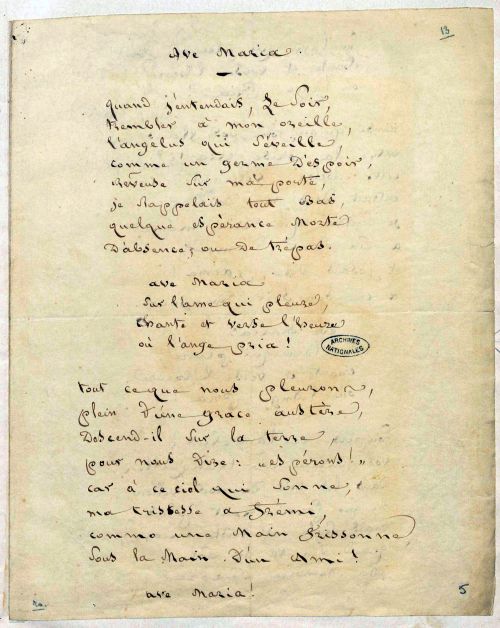 13
Ave Maria.
quand j'entendais, le soir,
trembler à mon oreille,
l'angelus qui s'éveille
comme un germe d'espoir,
Rêveuse sur ma porte,
je rappelais tout bas,
quelque espérance morte
D'absence, ou de trépas.
ave Maria
sur l'ame qui pleure,
chante et verse l'heure
où l'ange pria !
ARCHIVES
NATIONALES
tout ce que nous pleurons,
plein d'une grace austère,
Descend-il sur la terre
pour nous dire : « espérons ! »
car à ce ciel qui sonne,
ma tristesse a frémi,
comme une main frissonne
sous la main d'un ami !
ave Maria !
5